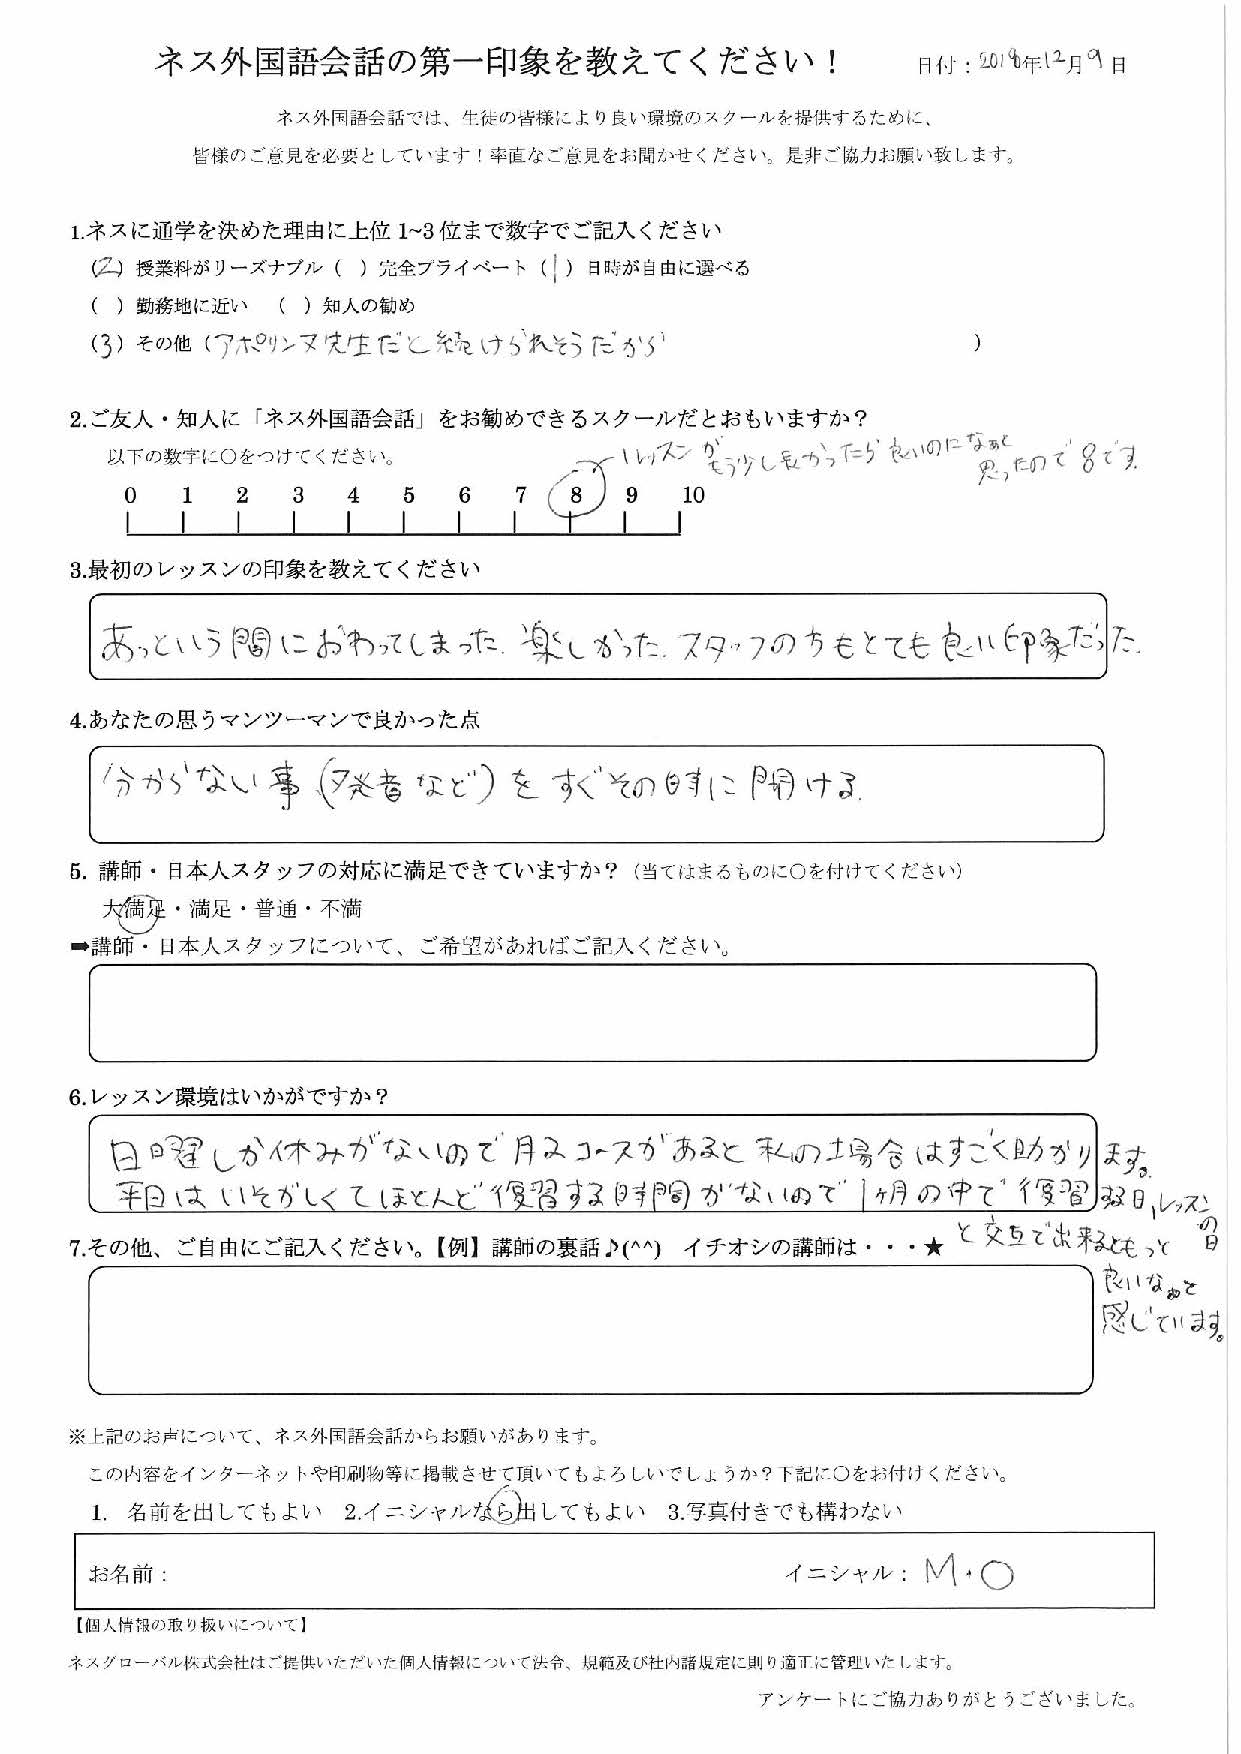 ネス外国語会話の第一印象を教えてください！ 日付：2018年12月9日
ネス外国語会話では、生徒の皆様により良い環境のスクールを提供するために、
皆様のご意見を必要としています！率直なご意見をお聞かせください。是非ご協力お願い致します。
1.ネスに通学を決めた理由に上位 1~3 位まで数字でご記入ください
（2）授業料がリーズナブル（ ）完全プライベート（1）日時が自由に選べる
（ ）勤務地に近い （ ）知人の勧め
（3）その他（アポリンヌ先生だと続けられそうだから ）
2.ご友人・知人に「ネス外国語会話」をお勧めできるスクールだとおもいますか？
以下の数字に〇をつけてください。
レッスンがもう少し長かったら良いのになぁと
思ったので8です。
0 1 2 3 4 5 6 7 8 9 10
3.最初のレッスンの印象を教えてください
あっという間におわってしまった. 楽しかった. スタッフの方もとても良い印象だった.
4.あなたの思うマンツーマンで良かった点
分からない事（発音など）をすぐその時に聞ける.
5. 講師・日本人スタッフの対応に満足できていますか？（当てはまるものに〇を付けてください）
大満足・満足・普通・不満
➡講師・日本人スタッフについて、ご希望があればご記入ください。
6.レッスン環境はいかがですか？
日曜しか休みがないので月2コースがあると私の場合はすごく助かります。
平日はいそがしくてほとんど復習する時間がないので1ヶ月の中で復習する日、レッスンの日
と交互で出来るともっと
良いなぁと
感じています。
7.その他、ご自由にご記入ください。【例】講師の裏話♪(^^) イチオシの講師は・・・★
※上記のお声について、ネス外国語会話からお願いがあります。
この内容をインターネットや印刷物等に掲載させて頂いてもよろしいでしょうか？下記に〇をお付けください。
1. 名前を出してもよい 2.イニシャルなら出してもよい 3.写真付きでも構わない
お名前： イニシャル：M・O
【個人情報の取り扱いについて】
ネスグローバル株式会社はご提供いただいた個人情報について法令、規範及び社内諸規定に則り適正に管理いたします。
アンケートにご協力ありがとうございました。